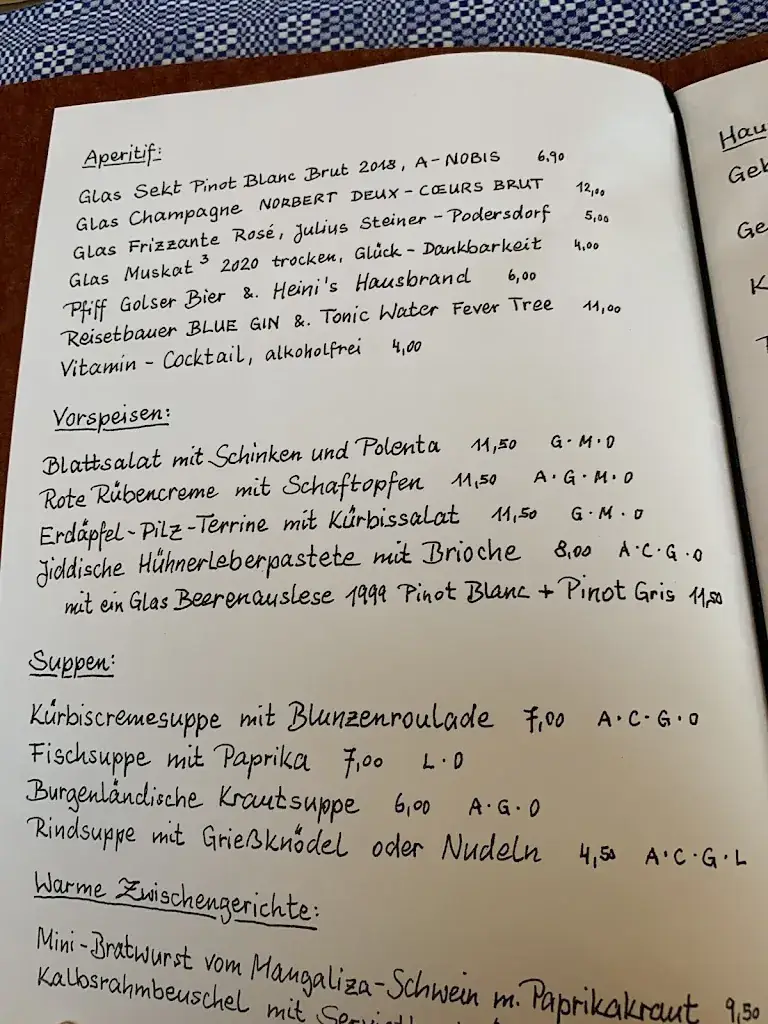 Aperitif:
Glas Sekt Pinot Blanc Brut 2018, A-NOBIS 6,90
Glas Champagne NORBERT DEUX-CŒURS BRUT 12,00
Glas Frizzante Rosé, Julius Steiner - Podersdorf 5,00
Glas Muskat³ 2020 trocken, Glück - Dankbarkeit 4,00
Pfiff Golser Bier &. Heini's Hausbrand 6,00
Reisetbauer BLUE GIN &. Tonic Water Fever Tree 11,00
Vitamin - Cocktail, alkoholfrei 4,00
Vorspeisen:
Blattsalat mit Schinken und Polenta 11,50 G·M·O
Rote Rübencreme mit Schaftopfen 11,50 A·G·M·O
Erdäpfel-Pilz-Terrine mit Kürbissalat 11,50 G·M·O
Jiddische Hühnerleberpastete mit Brioche 8,00 A·C·G·O
mit ein Glas Beerenauslese 1999 Pinot Blanc + Pinot Gris 11,50
Suppen:
Kürbiscremesuppe mit Blunzenroulade 7,00 A·C·G·O
Fischsuppe mit Paprika 7,00 L·O
Burgenländische Krautsuppe 6,00 A·G·O
Rindsuppe mit Grießknödel oder Nudeln 4,50 A·C·G·L
Warme Zwischengerichte:
Mini-Bratwurst vom Mangaliza-Schwein m. Paprikakraut 9,50
Kalbsrahmbeuschel mit
Hau
Geb
Ge
K